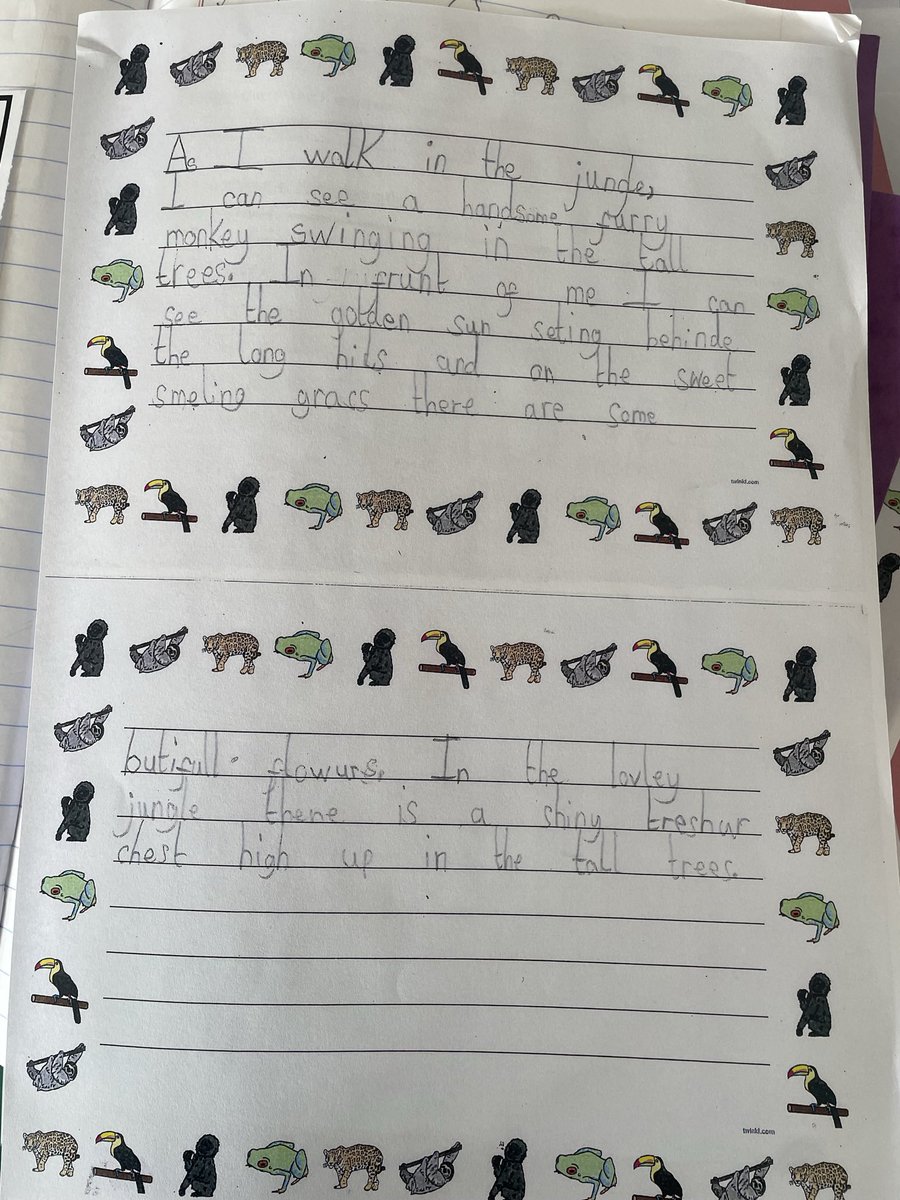 As I walk in the jungle,
I can see a handsome furry
monkey swinging in the tall
trees. In frunt of me I can
see the golden sun seting behinde
the long hils and on the sweet
smeling grass there are some
twinkl.com
butifull flowurs. In the lovley
jungle there is a shiny treshur
chest high up in the tall trees.
twinkl.com